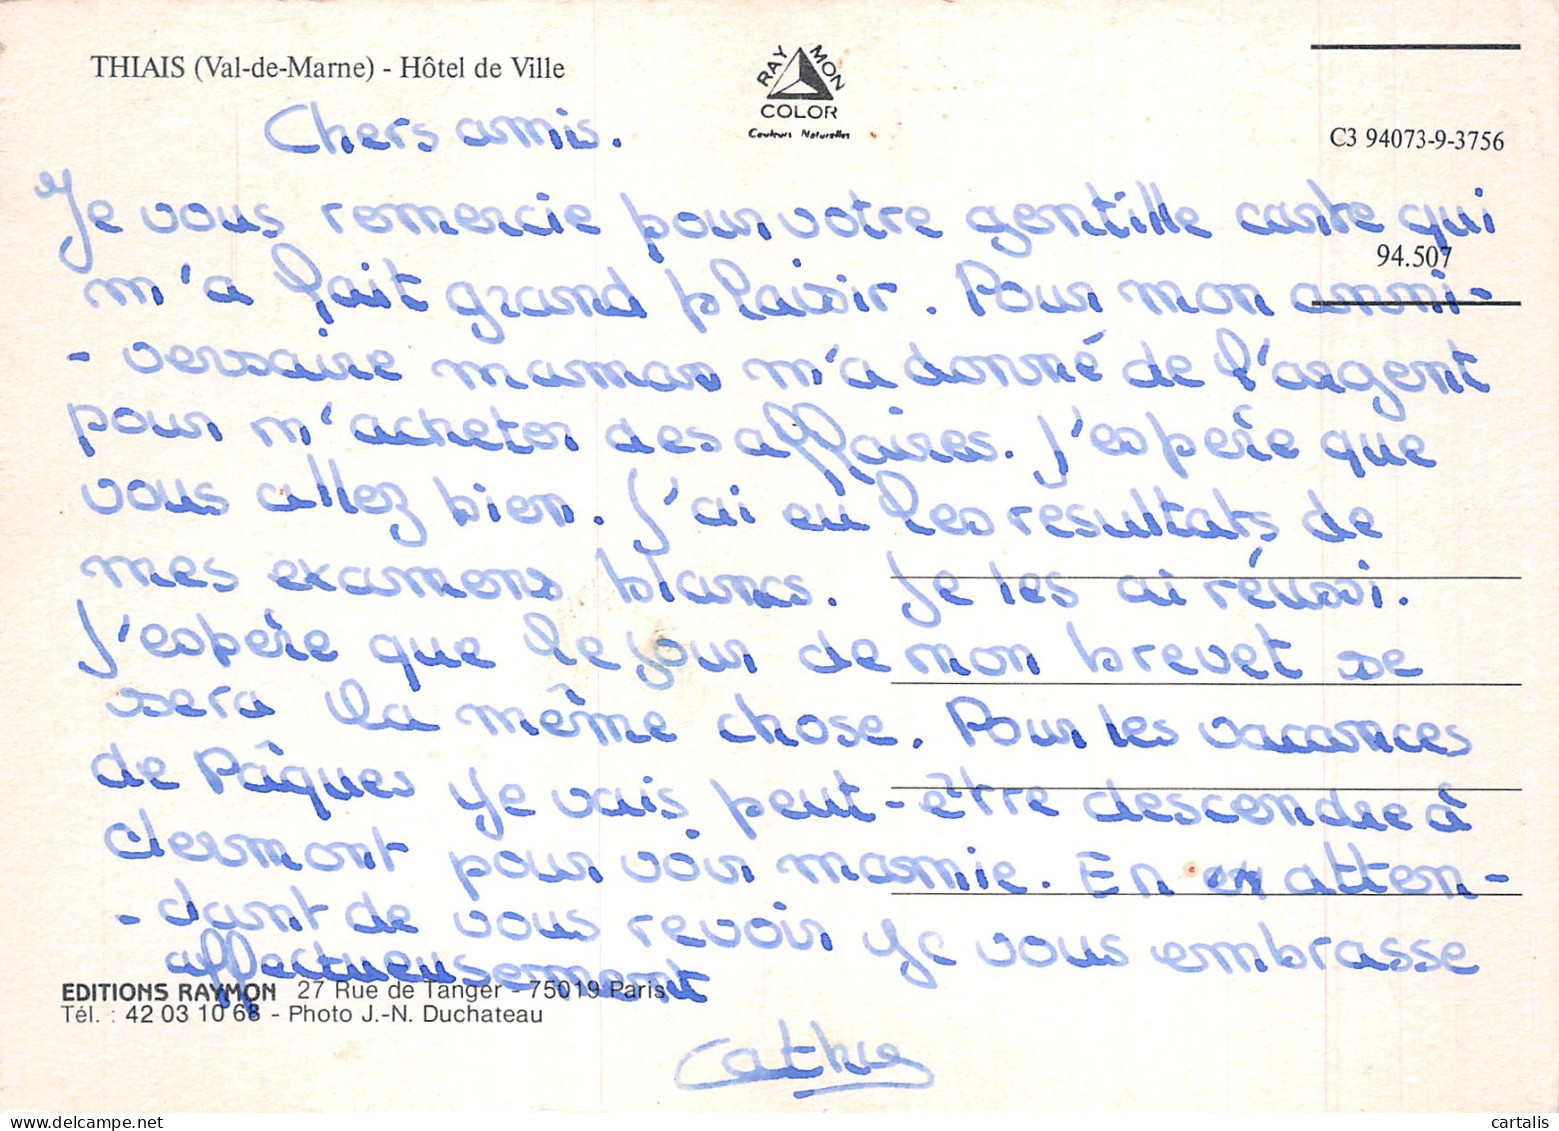 THIAIS (Val-de-Marne) - Hôtel de Ville
RAYMON
COLOR
Couleurs Naturelles
C3 94073-9-3756
94.507
Chers amis.
Je vous remercie pour votre gentille carte qui
m'a fait grand plaisir. Pour mon anni-
- versaire maman m'a donné de l'argent
pour m'acheter des affaires. J'espère que
vous allez bien. J'ai eu les resultats de
mes examens blancs. Je les ai réussi.
J'espère que le jour de mon brevet se
sera la même chose. Pour les vacances
de Pâques je vais peut-être descendre à
clermont pour voir mamie. En atten-
- dant de vous revoir je vous embrasse
affectueusement
Cathy
EDITIONS RAYMON 27 Rue de Tanger - 75019 Paris
Tél. : 42 03 10 68 - Photo J.-N. Duchateau
cartalis